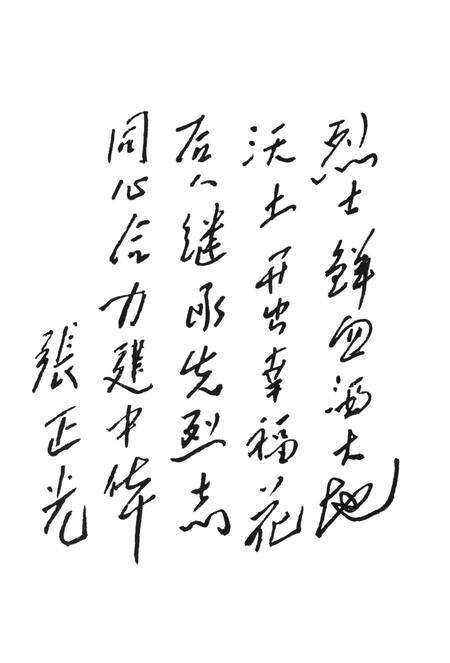 烈士鲜血洒大地
沃土开出幸福花
后人继承先烈志
同心合力建中华
張正光